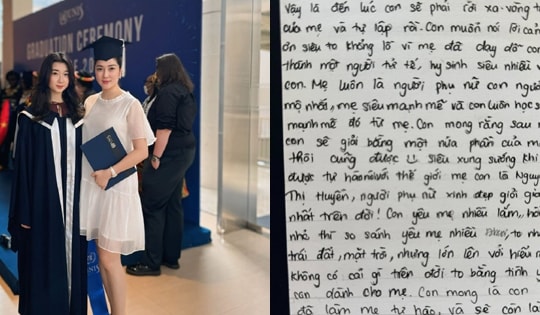 UNIS
GRADUATION CEREMONY
vậy là đến lúc con sẽ phải rời xa vòng t
của mẹ và tự lập rồi. Con muốn nói lời cản
ơn siêu to khổng lồ vì mẹ đã dạy dỗ con
thành một người tử tế, hy sinh siêu nhiều v
con. Mẹ luôn là người phụ nữ con ngưỡ
mộ nhất, mẹ siêu mạnh mẽ và con luôn học s
mạnh mẽ đó từ mẹ. Con mong rằng sau n
con sẽ giỏi bằng một nửa phần của m
thôi cũng được siêu sung sướng khi
được tự hào nói với thế giới mẹ con là Nguy
Thị Huyền, người phụ nữ xinh đẹp giỏi gia
nhất trên đời! Con yêu mẹ nhiều lắm, hồ
nhỏ thì so sánh yêu mẹ nhiều to nh
trái đất, mặt trời, nhưng lớn lên với hiểu r
không có cái gì trên đời to bằng tình y
con dành cho mẹ. Con mong là con
đã làm mẹ tự hào, và sẽ còn là